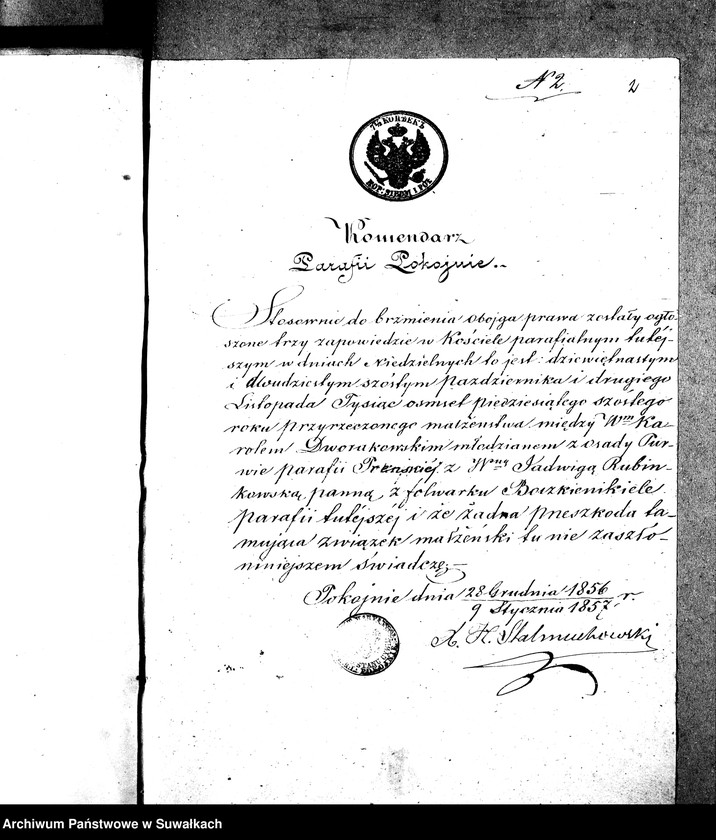 N 2. 2
7½ KOПѢEKЪ
KOP: SIEDM I PÓŁ
Komendarz
Parafii Pokojnie.
Stosownie do brzmienia obojga prawa zostały ogło-
szone trzy zapowiedzie w Kościele parafialnym tutéj-
szym w dniach Niedzielnych to jest: dziewiętnastym
i dwudziestym szóstym pazdziernika i drugiego
Listopada Tysiąc osmset piedziesiątego szóstego
roku przyrzeczonego malżeństwa między Wm Ka-
rolem Dworakowskim młodzianem z osady Pur-
wie parafii z Wną Jadwigą Rubin-
kowską panną, z folwarku Boczkienikiele
parafii tutejszéj i że żadna pneszkoda ta-
mująca związek małżeński tu nie zaszło-
niniejszem świadczę.—
Pokojnie dnia 28 Grudnia 1856 r.
9 Stycznia 1857
X. H. Stalmuchowski
Archiwum Państwowe w Suwałkach